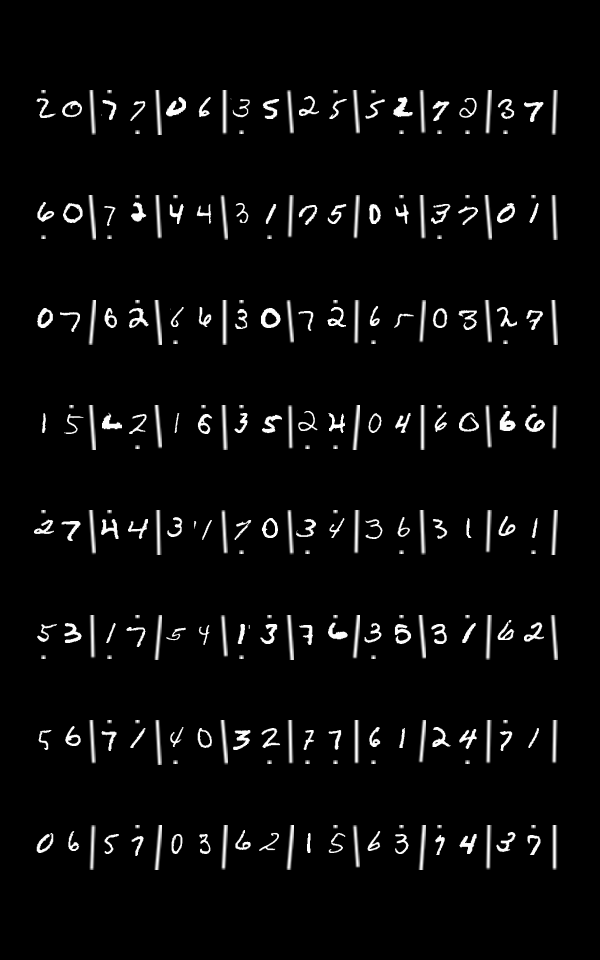 2 0 | 7 7 | 0 6 | 3 5 | 2 5 | 5 2 | 7 2 | 3 7 |
6 0 | 7 2 | 4 4 | 3 1 | 7 5 | 0 4 | 3 7 | 0 1 |
0 7 | 6 2 | 6 6 | 3 0 | 7 2 | 6 5 | 0 3 | 2 7 |
1 5 | 6 2 | 1 6 | 3 5 | 2 4 | 0 4 | 6 0 | 6 6 |
2 7 | 4 4 | 3 1 | 7 0 | 3 4 | 3 6 | 3 1 | 6 1 |
5 3 | 1 7 | 5 4 | 1 3 | 7 6 | 3 5 | 3 1 | 6 2 |
5 6 | 7 1 | 4 0 | 3 2 | 7 7 | 6 1 | 2 4 | 7 1 |
0 6 | 5 7 | 0 3 | 6 2 | 1 5 | 6 3 | 7 4 | 3 7 |